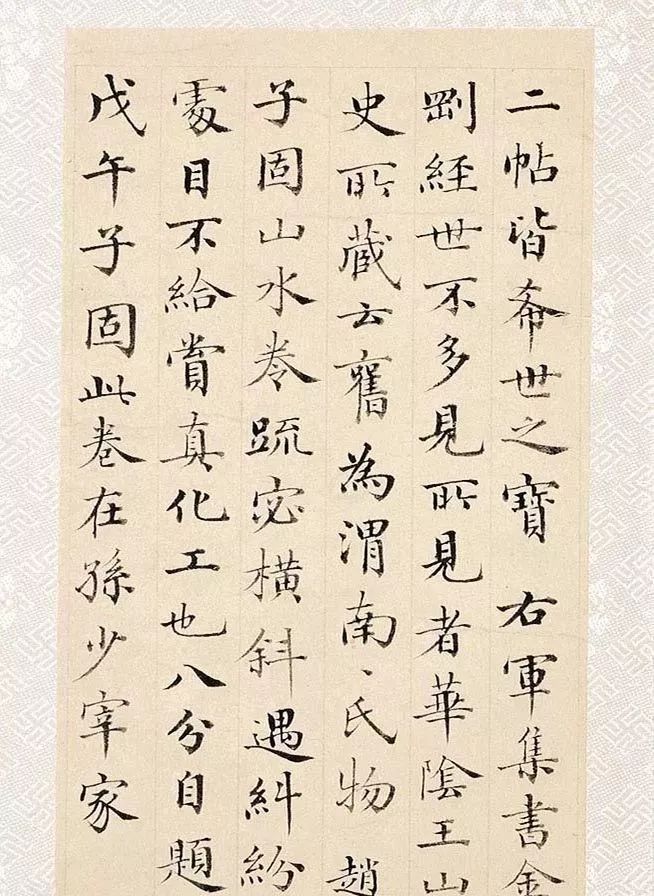 二帖皆希世之寶 右軍集書金
剛經世不多見所見者華陰王山
史所藏云舊為渭南、氏物 趙
子固山水卷疏宓橫斜遇糾紛
處目不給賞真化工也八分自題
戊午子固此卷在孫少宰家